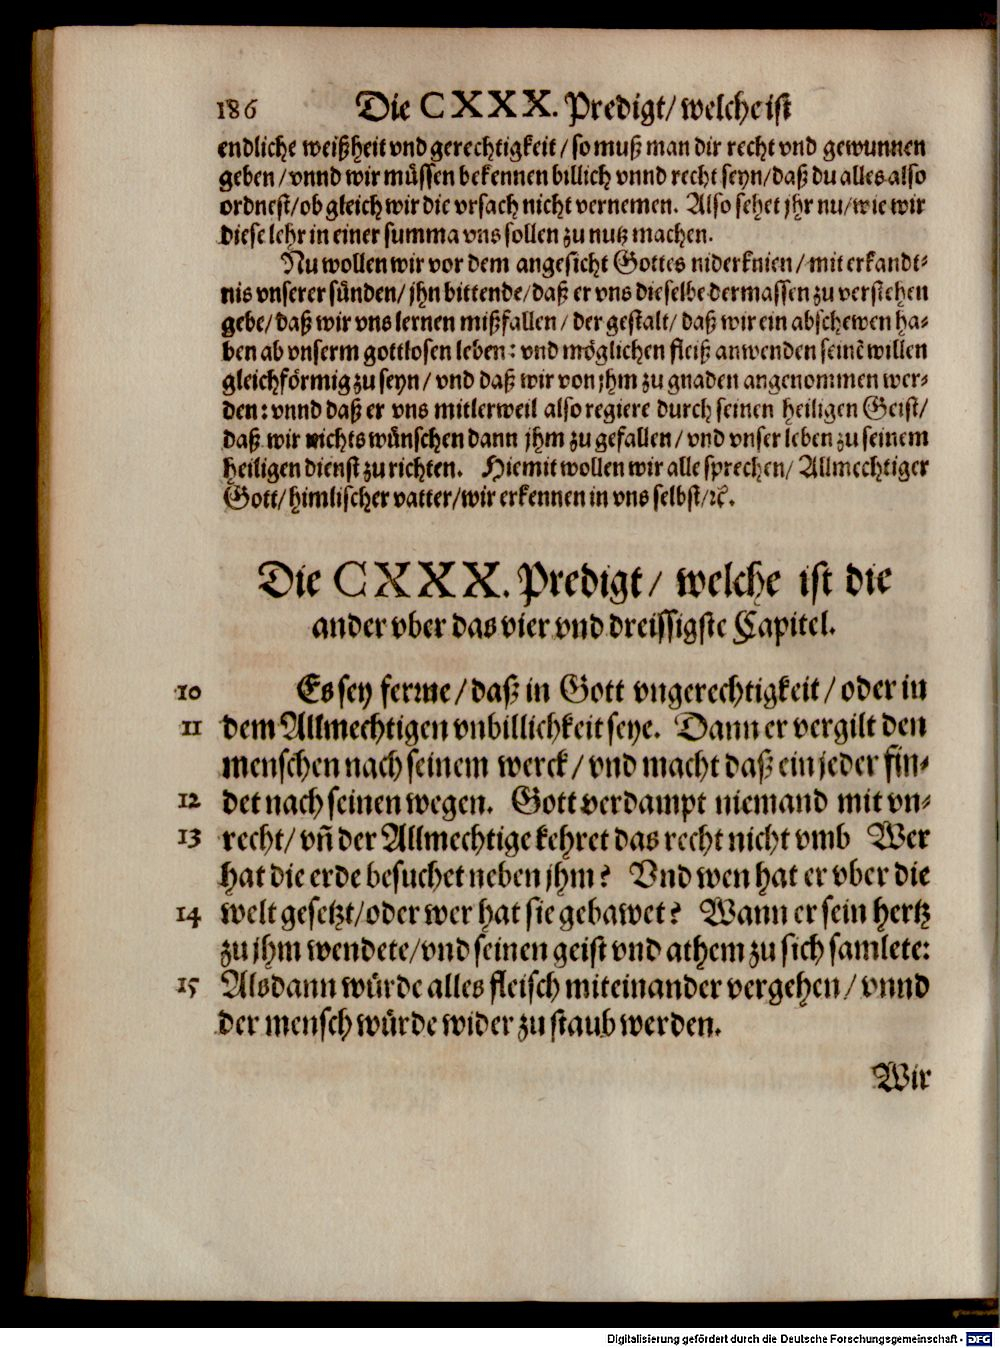 186 Die CXXX. Predigt/ welche ist
endliche weißheit vnd gerechtigkeit/ so muß man dir recht vnd gewunnen
geben/ vnnd wir müssen bekennen billich vnnd recht seyn/ daß du alles also
ordnest/ ob gleich wir die vrsach nicht vernemen. Also sehet jhr nu/ wie wir
diese lehr in einer summa vns sollen zu nutz machen.
Nu wollen wir vor dem angesicht Gottes niderknien/ mit erkandt-
nis vnserer sünden/ jhn bittende/ daß er vns dieselbe dermassen zu verstehen
gebe/ daß wir vns lernen mißfallen/ der gestalt/ daß wir ein abschewen ha-
ben ab vnserm gottlosen leben: vnd möglichen fleiß anwenden seinē willen
gleichförmig zu seyn/ vnd daß wir von jhm zu gnaden angenommen wer-
den: vnnd daß er vns mitlerweil also regiere durch seinen heiligen Geist/
daß wir nichts wünschen dann jhm zu gefallen/ vnd vnser leben zu seinem
heiligen dienst zu richten. Hiemit wollen wir alle sprechen/ Allmechtiger
Gott/ himlischer vatter/ wir erkennen in vns selbst/ ꝛc.
Die CXXX. Predigt/ welche ist die
ander vber das vier vnd dreissigste Capitel.
10 Es sey ferrne/ daß in Gott vngerechtigkeit/ oder in
11 dem Allmechtigen vnbillichkeit seye. Dann er vergilt den
menschen nach seinem werck/ vnd macht daß ein jeder fin-
12 det nach seinen wegen. Gott verdampt niemand mit vn-
13 recht/ vn̄ der Allmechtige kehret das recht nicht vmb Wer
hat die erde besuchet neben jhm? Vnd wen hat er vber die
14 welt gesetzt/ oder wer hat sie gebawet? Wann er sein hertz
zu jhm wendete/ vnd seinen geist vnd athem zu sich samlete:
15 Alsdann würde alles fleisch miteinander vergehen/ vnnd
der mensch würde wider zu staub werden.
Wir
Digitalisierung gefördert durch die Deutsche Forschungsgemeinschaft - DFG